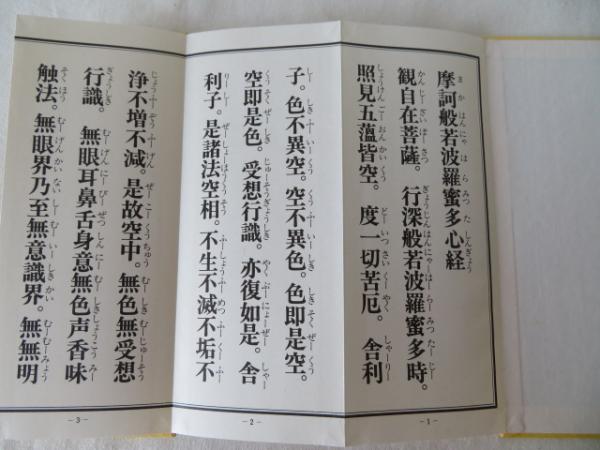 摩訶般若波羅蜜多心経
観自在菩薩。行深般若波羅蜜多時。
照見五蘊皆空。度一切苦厄。舎利
子。色不異空。空不異色。色即是空。
空即是色。受想行識。亦復如是。舎
利子。是諸法空相。不生不滅不垢不
浄不増不減。是故空中。無色無受想
行識。無眼耳鼻舌身意無色声香味
触法。無眼界乃至無意識界。無無明
-1-
-2-
-3-